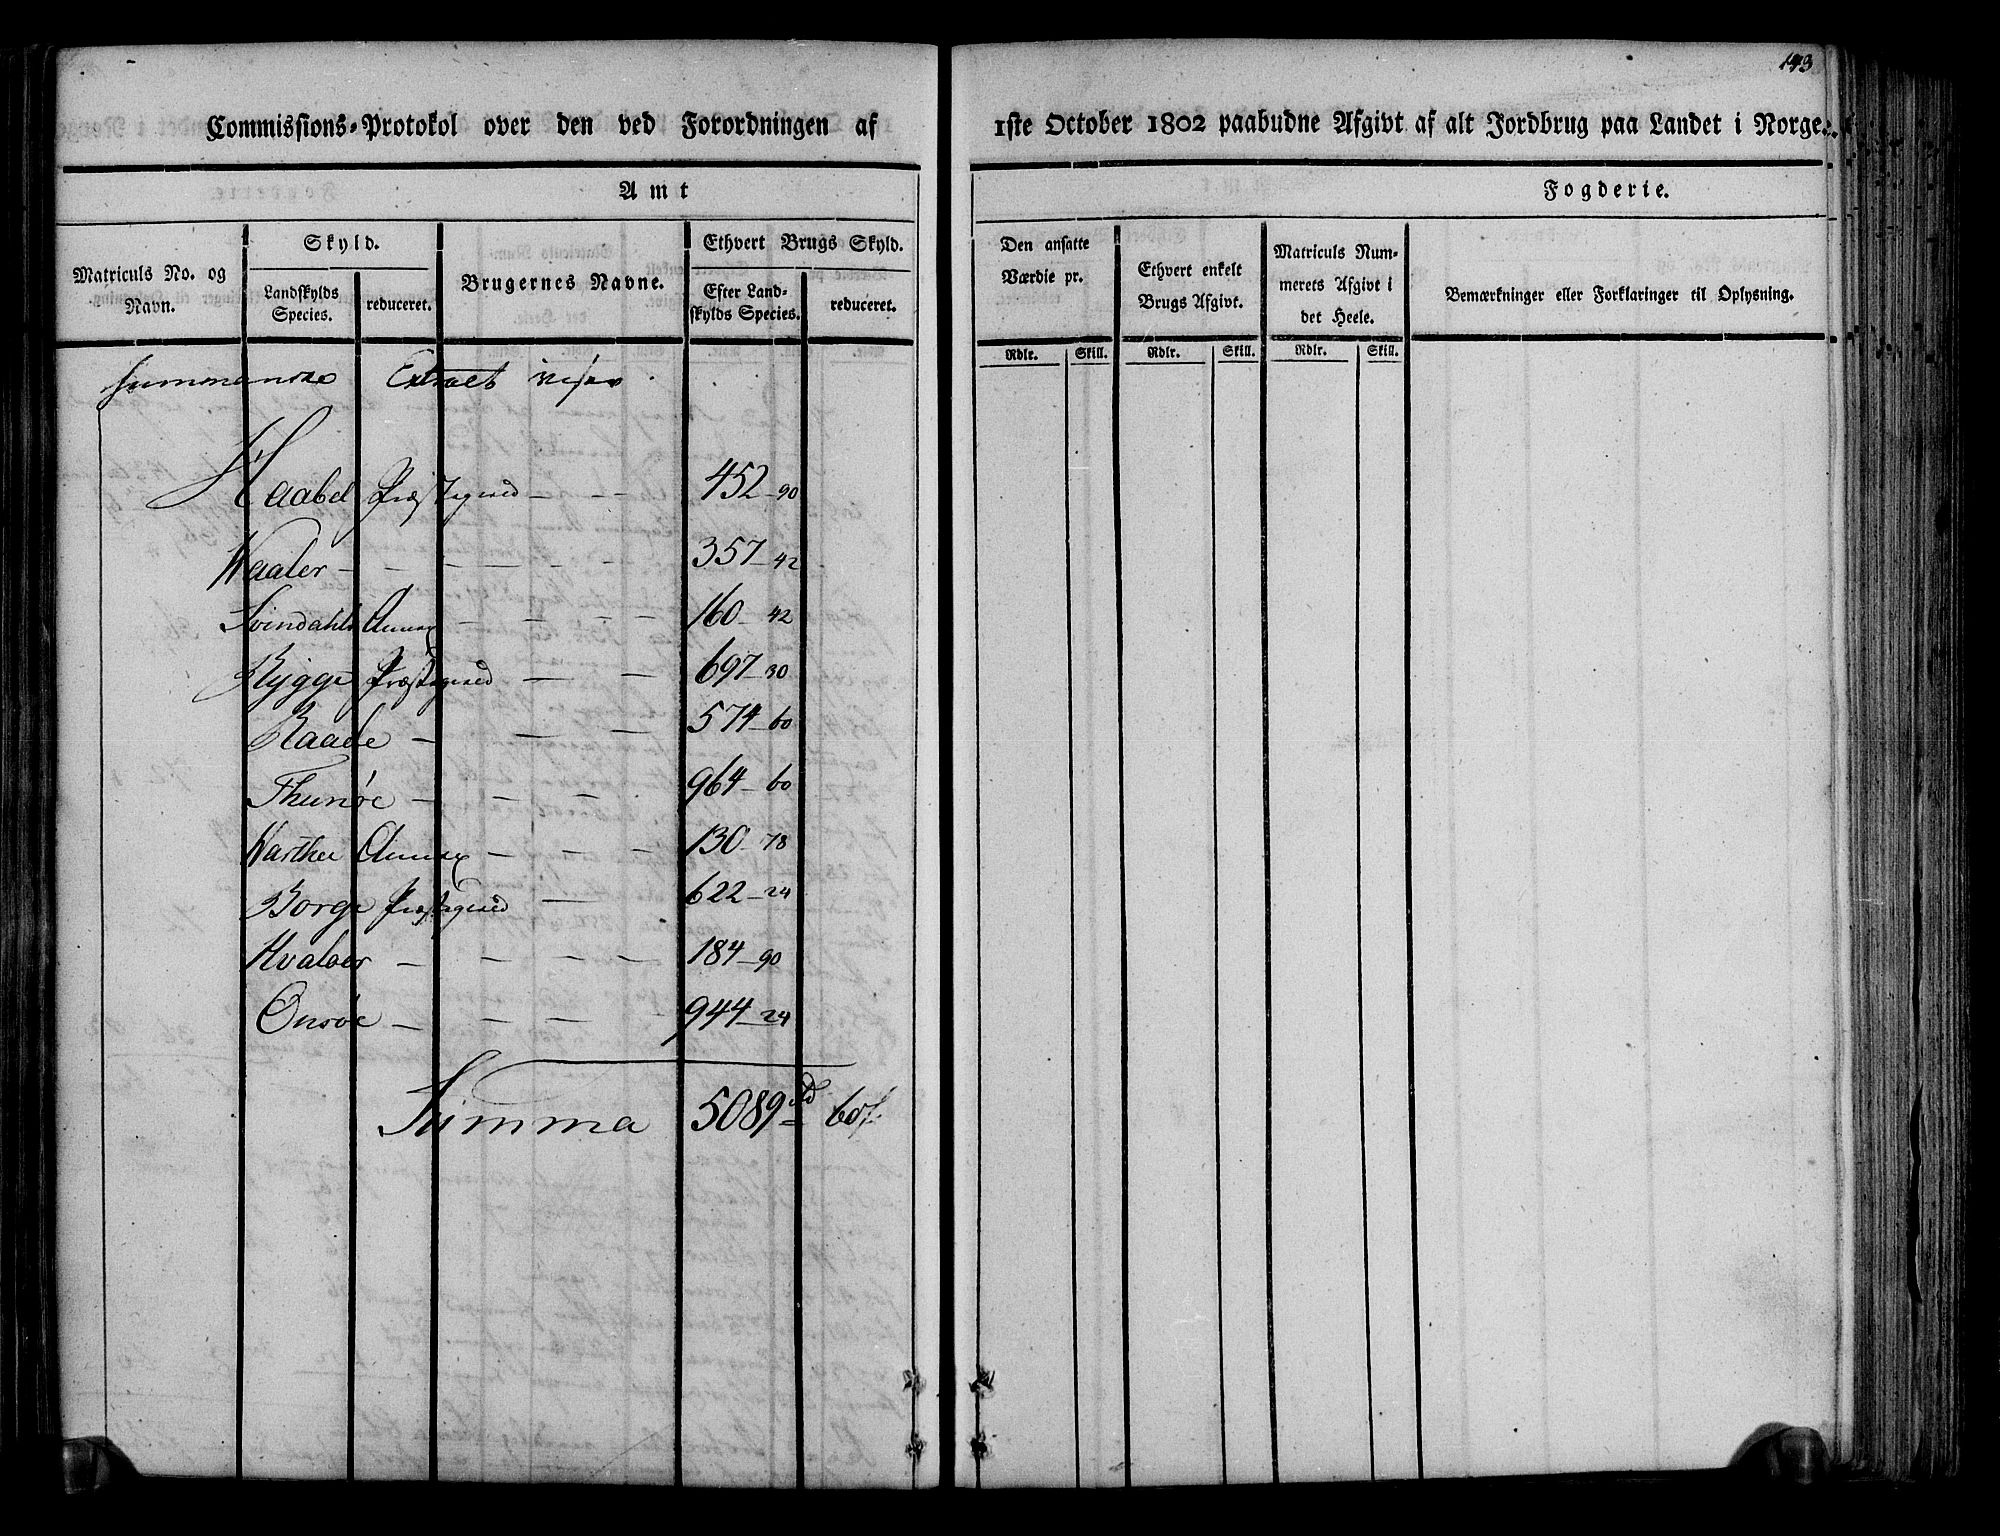 143
Commissions-Protokol over den ved Forordningen af 1ste October 1802 paabudne Afgivt af alt Jordbrug paa Landet i Norge.
Amt Fogderie.
Matriculs No. og Navn.
Skyld.
Landskylds Species.
reduceret.
Brugernes Navne.
Ethvert Brugs Skyld.
Efter Landskylds Species.
reduceret.
Den ansatte Værdie pr.
Ethvert enkelt Brugs Afgivt.
Matriculs Nummerets Afgivt i det Heele.
Bemærkninger eller Forklaringer til Oplysning.
Rdlr. Skill. Rdlr. Skill. Rdlr. Skill.
Summariske Extract viser
Haabel Præstegield - - - 452 - 90
Waaler - - - - - - 357 - 42
Svindahls Annex - - - - 160 - 42
Rygge Præstegield - - 697 - 30
Raade - - - 574 - 60
Thunøe - - - 964 - 60
Warther Annex - - - 130 - 78
Borge Præstegield - 622 - 24
Hvaløer - - - - 184 - 90
Onsøe - - - - 944 - 24
Summa 5089 rd 60 s.